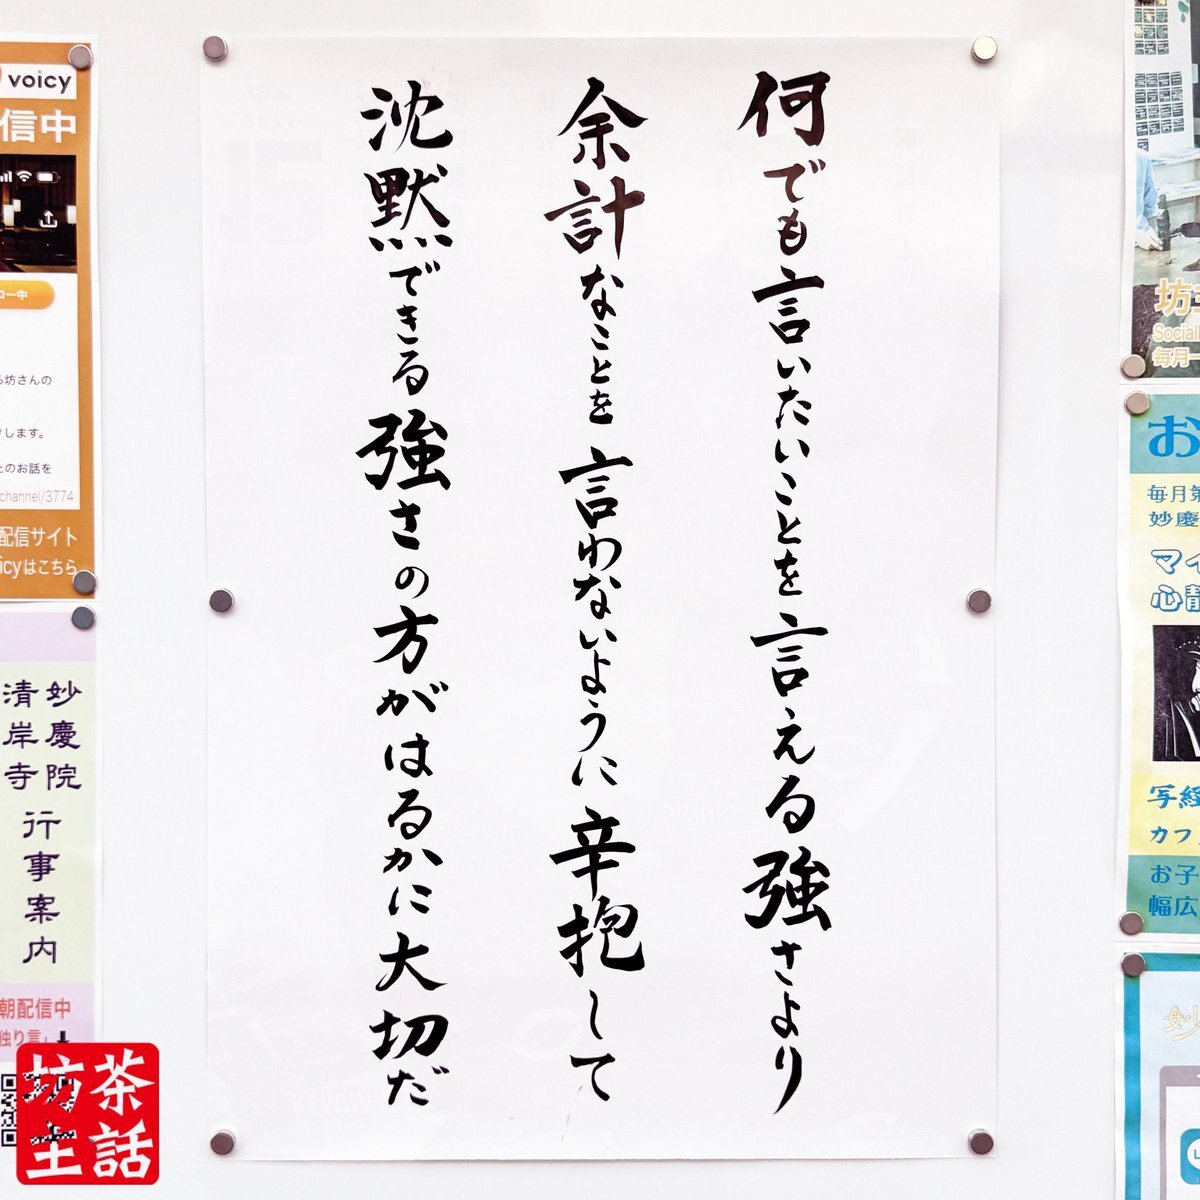 何でも言いたいことを言える強さより
余計なことを言わないように辛抱して
沈黙できる強さの方がはるかに大切だ
voicy
信中
坊さんの
します。
のお話を
channel/3774
配信サイト
icyはこちら
妙慶院
清岸寺
行事案内
朝配信中
独り言」
茶話
坊主
坊主
Sociall
毎月一
お
毎月第
妙慶
マイ
心静
写経
カフ
お子
幅広
妙